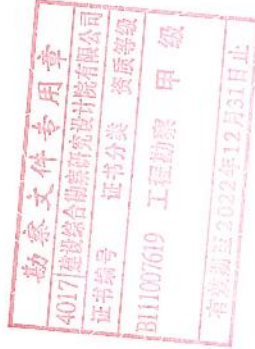 勘察文件专用章
4017建设综合勘察研究设计院有限公司
证书编号 证书分类 资质等级
B111007619 工程勘察 甲级
有效期至2022年12月31日止